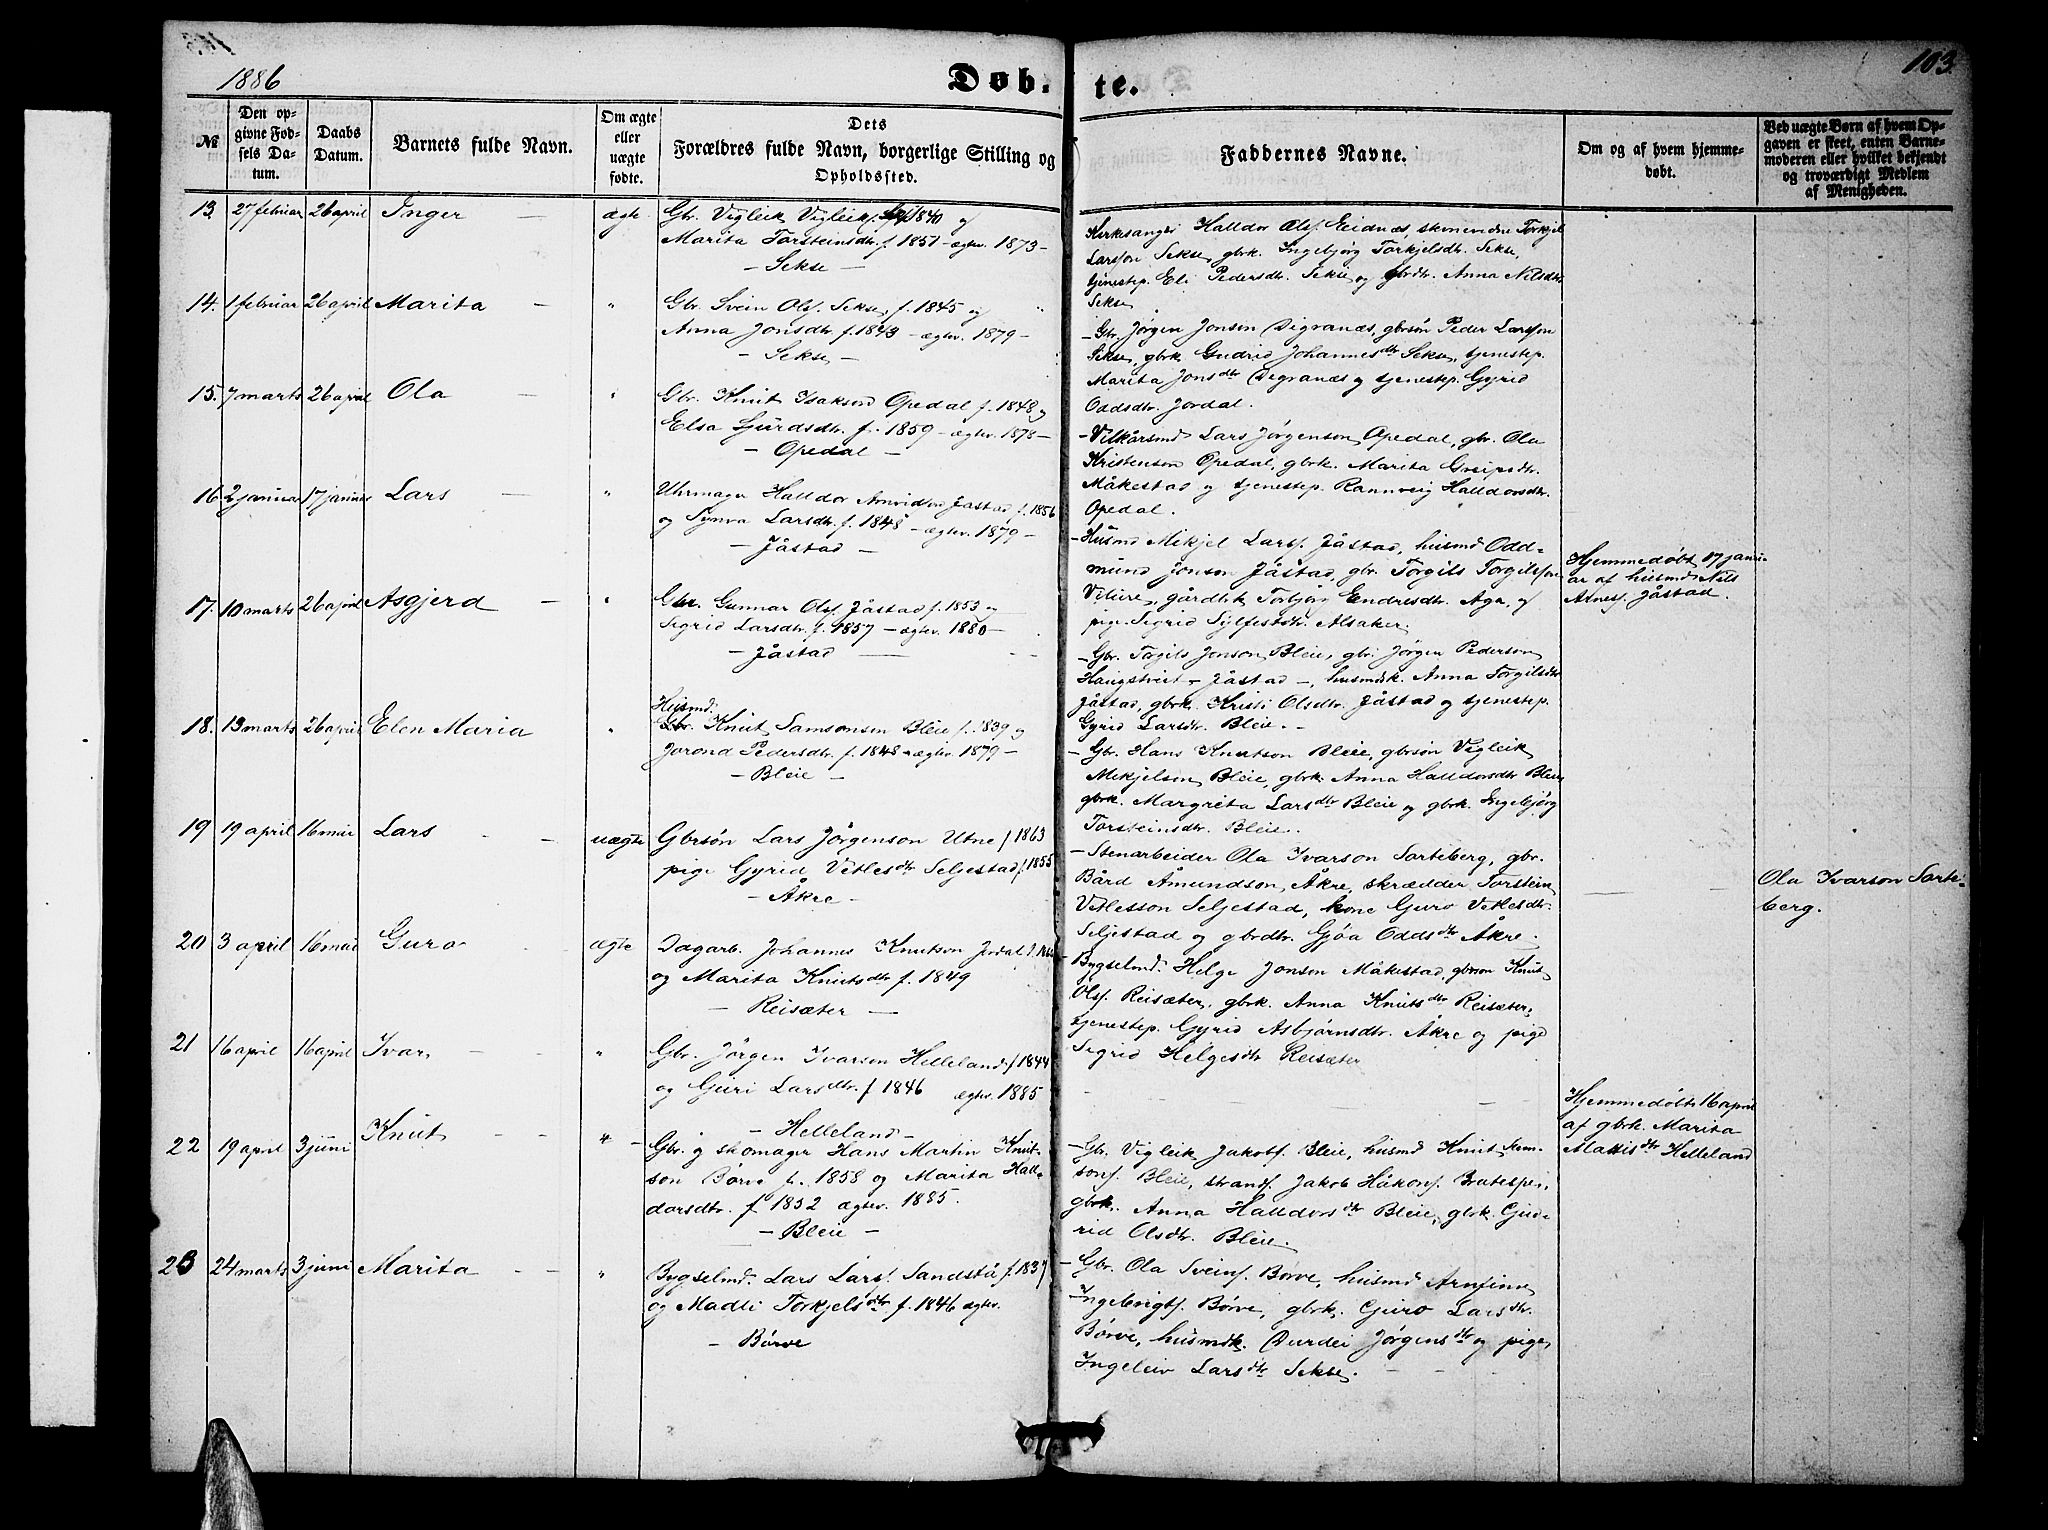 1886
Døb-te.
103.
№
Den op-
givne Fød-
sels Da-
tum.
Daabs
Datum.
Barnets fulde Navn.
Om ægte
eller
uægte
fødte.
Dets
Forældres fulde Navn, borgerlige Stilling og
Opholdssted.
Faddernes Navne.
Om og af hvem hjemme-
døbt.
Ved uægte Børn af hvem Op-
gaven er skeet, enten Barne-
moderen eller hvilket bekjendt
og troværdigt Medlem
af Menigheden.
13. 27 februar 26 april Inger — ægte
Gbr. Vigleik Vigleiks. f. 1840 og
Marita Torsteinsdtr. f. 1851 – ægtev. 1873 –
– Sekse –
Kirkesanger Halldor Ols. Eidnæs, Torkjel
Larsson Sekse, gbrk. Ingebjørg Torkjelsdtr. Sekse,
tjenestep. Eli Pedersdtr. Sekse og gbrdtr. Anna Nilsdtr.
Sekse
14. 1 februar 26 april Marita — "
Gbr. Svein Ols. Sekse, f. 1845 og
Anna Jonsdtr. f. 1843 – ægtev. 1879 –
– Sekse –
– Gbr. Jørgen Jonson Digranæs, gbrsøn Peder Larsson
Sekse, gbrk. Gudrid Johannesdtr. Sekse, tjenestep.
Marita Jonsdtr Digranæs og tjenestep. Gyrid
Oddsdtr. Jordal.
15. 7 marts 26 april Ola — "
Gbr. Knut Isakson Opedal f. 1848 og
Elsa Sjurdsdtr. f. 1859 – ægtev. 1878 –
– Opedal –
– Vilkårsmd Lars Jørgenson Opedal, gbr. Ola
Kristenson Opedal, gbrk. Marita Greipsdtr.
Måkestad og tjenestep. Rannveig Halldorsdtr.
Opedal.
16 2 januar 17 januar Lars — "
Uhrmager Halldor Arnvidson Jåstad f. 1856
og Synva Larsdtr. f. 1848 – ægtev. 1879 –
– Jåstad –
– Husmd Mikjel Lars. Jåstad, husmd Odd-
mund Jonson Jåstad, gbr. Torgils Torgilsson
Vilure, gårdbk Torbjørg Endresdtr. Aga, og
pige Sigrid Sylfestdtr. Alsaker.
Hjemmedøbt 17 janu-
ar af husmd Nils
Arnes. Jåstad.
17. 10 marts 26 april Asgjerd — "
Gbr. Gunnar Ols. Jåstad f. 1853 og
Sigrid Larsdtr. f. 1857 – ægtev. 1880 –
– Jåstad —
– Gbr. Torgils Jonson Bleie, gbr. Jørgen Pederson
Haugstveit – Jåstad –, husmdk. Anna Torgilsdtr
Jåstad, gbrk. Kristi Olsdtr. Jåstad og tjenestep.
Gyrid Larsdtr. Bleie. –
18. 13 marts 26 april Elen Maria "
Husmd.
Gbr. Knut Samsonsen Bleie f. 1839 og
Jorond Pedersdtr. f. 1848 – ægtev. 1879 –
– Bleie –
– Gbr. Hans Knutson Bleie, gbrsøn Vigleik
Mikjelson Bleie, gbrk. Anna Halldorsdtr Bleie
gbrk. Margreta Larsdtr Bleie og gbrk. Ingebjørg
Torsteinsdtr. Bleie.
19 19 april 16 mai Lars — uægte
Gbrsøn Lars Jørgenson Utne f 1863
pige Gyrid Vetlesdtr Seljestad f. 1855
– Åkre –
– Stenarbeider Ola Ivarson Sarteberg, gbr.
Bård Åmundson Åkre, skrædder Torstein
Vetlesson Seljestad, kone Guro Vetlesdtr.
Seljestad og gbrdtr. Gjøa Oddsdtr Åkre.
Ola Ivarson Sarte-
berg.
20 3 april 16 mai Guro ægte
Dagarb. Johannes Knutson Jordal
og Marita Knutsdtr f. 1849
– Reisæter –
Bygselmd. Helge Jonson Måkestad, gbrsøn Knut
Ols. Reisæter, gbrk. Anna Knutsdtr Reisæter,
tjenestep. Gyrid Asbjørnsdtr. Åkre og pige
Sigrid Helgesdtr Reisæter
21 16 april 16 april Ivar — "
Gbr. Jørgen Ivarson Helleland f 1844
og Guri Larsdtr. f 1846 ægtev. 1885
– Helleland –
Hjemmedøbt 16 april
af gbrk. Marita
Mattisdtr Helleland
22 19 april 3 juni Knut — "
Gbr. og skomager Hans Martin Knut-
son Børve f. 1858 og Marita Hall-
dorsdtr. f 1852 ægtev. 1885.
– Bleie –
– Gbr. Vigleik Jakobs. Bleie, husmd Knut Sam-
sons. Bleie, strands. Jakob Håkons. Bratespe,
gbrk. Anna Halldorsdtr Bleie, gbrk. Gud-
rid Olsdtr. Bleie.
23 24 marts 3 juni Marita — "
Bygselmd. Lars Lars. Sandstå f. 1837
og Madli Torkjelsdtr f. 1846 ægtev.
– Børve
– Gbr. Ola Sveins. Børve, husmd Arnfinn
Ingebrigts. Børve, gbrk. Guro Larsdtr.
Børve, husmdk. Durdei Jørgensdtr og pige
Ingeleiv Larsdtr Sekse.